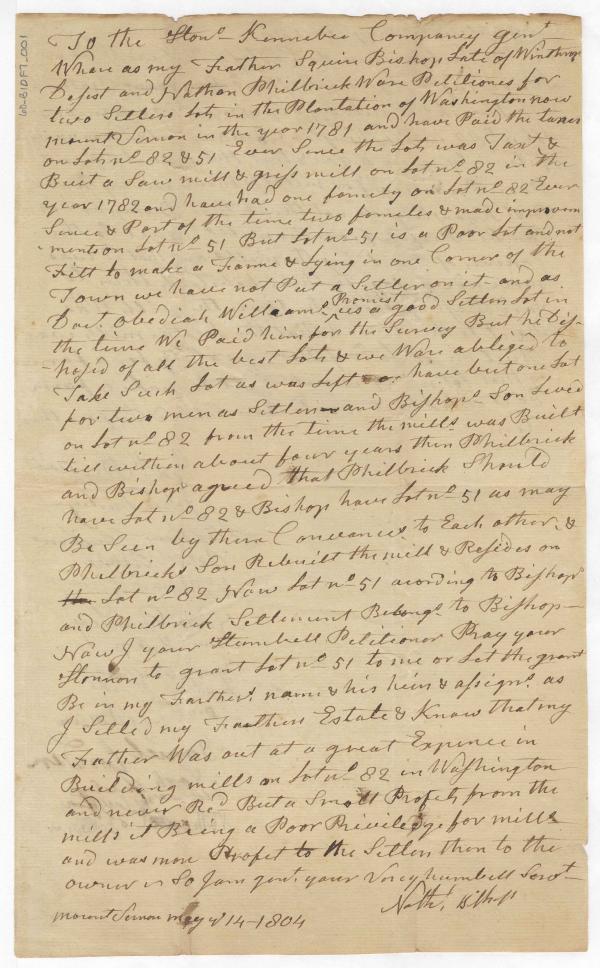 60-B1DF7.001
To the Hon.e Kennebec Compancy gen.t
Where as my Frather Squire Bishop Late of Winthrop
Desest and Nathan Philbrick Ware Petitiones for
two Setlers Lots in the Plantation of Washington now
mount Vernon in the year 1781 and have Paid the taxes
on Lots no 82 & 51 Ever Since the Lots was Taxt &
Buit a Saw mill & griss mill on Lot no 82 in the
year 1782 and have had one famely on Lot no 82 Ever
Since & Part of the time two fameles & made improvm
ments on Lot no 51 But Lot no 51 is a Poor Lot and not
Fitt to make a Farme & Lying in one Corner of the
Town we have not Put a Setler on it and as
Doct. Obediah Williams Promist us a good Setlers Lot in
the time We Paid him for the Survey But he Dis-
-posed of all the best Lots & we Ware abliged to
Take Such Lot as was Left or have but one Lot
for two men as Setlers and Bishops Son Lived
on Lot no 82 from the time the mills was Built
till within about four years then Philbrick
and Bishop agreed that Philbrick Should
have Lot no 82 & Bishop have Lot no 51 as may
Be Seen by there Conveances to Each other &
Philbricks Son Rebuilt the mill & Resides on
the Lot no 82 Now Lot no 51 acording to Bishop
and Philbrick Setlement Belongs to Bishop —
Now I your Humbell Petitionor Pray your
Honnors to grant Lot no 51 to me or Let the grant
Be in my Farthers name & his heirs & assigns as
I Setled my Frathers Estate & Know that my
Frather Was out at a great Expence in
Building mills on Lot no 82 in Washington
and never Re.d But a Small Profets from the
mills it Being a Poor Priviledge for mills
and was more Profet to the Setlers then to the
owners So I am gent. your Verey humbell Servt
Nath.l Bishop
mount Vernon may ye 14-1804